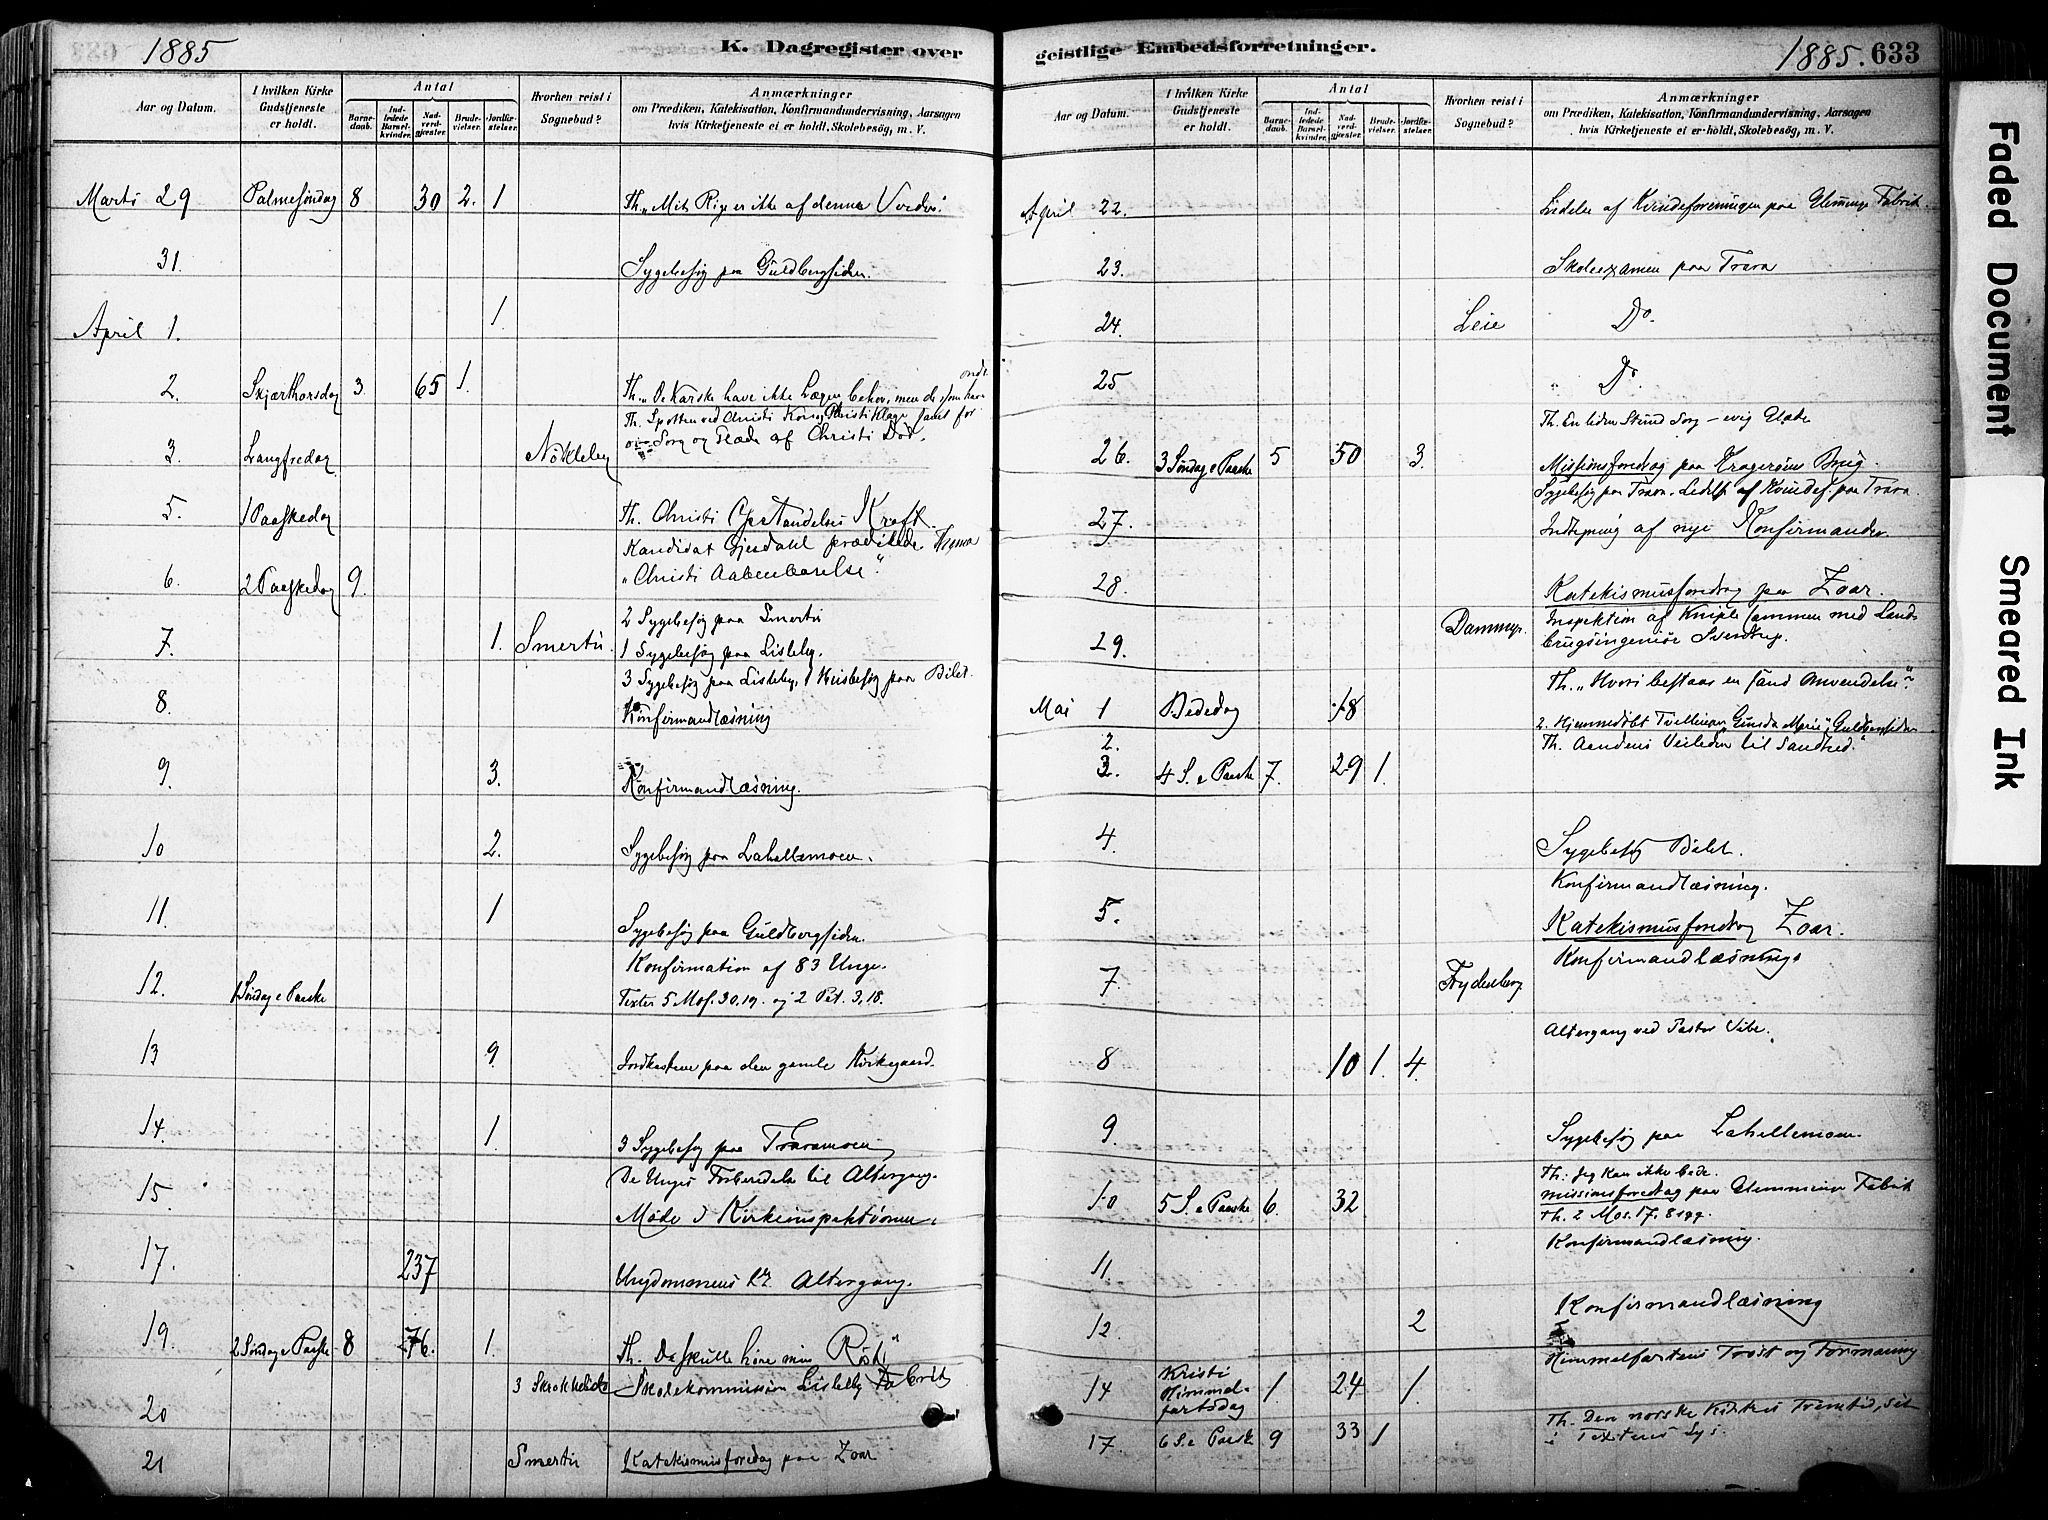 1885
K. Dagregister over
Aar og Datum.
I hvilken Kirke Gudstjeneste er holdt.
Antal
Barnedaab.
Indledede Barselkvinder.
Nadverdgjester.
Brudevielser.
Jordfæstelser.
Hvorhen reist i Sognebud?
Anmærkninger
om Prædiken, Katekisation, Konfirmandundervisning, Aarsagen
hvis Kirketjeneste ei er holdt, Skolebesøg, m. V.
Marts 29 Palmesøndag 8 30 2. 1 Th. "Mit Rige er ikke af denne Verden."
31. Sygebesøg paa Guldbergsiden.
April 1. 1.
2. Skjærthorsdag 3. 65 1. Th. "De Karske have ikke Lægen behov, men de som have ondt.
3. Langfredag Nøkleby
Sorg og Glæde af Christi Død.
5. 1 Paaskedag Th. Christi Opstandelses Kraft.
Kandidat Gjesdahl prædikede
6. 2 Paaskedag 9. "Christi Aabenbarelse".
2 Sygebesøg paa Smertu
7. 1. Smertu. 1 Sygebesøg paa Lisleby.
3 Sygebesøg paa Lisleby, 1 Husbesøg paa Bilet.
8. Konfirmandlæsning
9. 3. Konfirmandlæsning.
10 2. Sygebesøg paa Lahellemoen.
11. 1 Sygebesøg paa Guldbergsiden.
Konfirmation af 83 Unge.
12. 1 Søndag e Paaske Texter 5 Mos. 30.19. og 2 Pet. 3,18.
13 9. Jordkastelse paa den gamle Kirkegaard.
14. 1. 3 Sygebesøg paa Traramoen
De Unges Forberedelse til Altergang.
15 Møde i Kirkeinspektionen.
17. 237 Ungdommens Altergang.
19. 2 Søndag e Paaske 8 76. 1. Th. De skulle høre min Røst"
3 Skolekommission Lisleby Fabrik
20
21 Smertu Katekismusforedrag paa Zoar
geistlige Embedsforretninger.
1885.
633
Aar og Datum.
I hvilken Kirke Gudstjeneste er holdt.
Antal
Barnedaab.
Indledede Barselkvinder.
Nadverdgjester.
Brudevielser.
Jordfæstelser.
Hvorhen reist i Sognebud?
Anmærkninger
om Prædiken, Katekisation, Konfirmandundervisning, Aarsagen
hvis Kirketjeneste ei er holdt, Skolebesøg, m. V.
April 22. Ledelse af Kvindeforeningen paa Glemminge Fabrik
23. Skoleexamen paa Trara
24. Leie Do.
25 " Do.
Th. En liden Stund Sorg – evig Glæde
26. 3 Søndag e Paaske 5 50 3. Missionsforedrag paa Kragerøens Brug.
Sygebesøg paa Trara. Ledelse af Kvindef. paa Trara.
27. Indtegning af nye Konfirmander.
28. Katekismusforedrag paa Zoar.
29. Dammyr. Inspektion af Kniple sammen med Land-
brugsingeniør Sverdrup.
Th. "Hvori bestaar en sand Anvendelse".
Mai 1 Bededag 18
2. 2. Hjemmedøbt Tvillinger Guldbergsiden
Th. Aandens Veileden til Sandhed."
3. 4 S. e Paaske 7. 29 1.
4. Sygebesøg Bilet.
Konfirmandlæsning.
5. Katekismusforedrag Zoar.
Konfirmandlæsning.
7. Frydenberg
Altergang ved Pastor Vibe.
8 10 1. 4.
9. Sygebesøg paa Lahellemoen.
Th: Jeg kan ikke bede.
10 5 S. e Paaske 6. 32 missionsforedrag paa Glemminge Fabrik
Th. 2 Mos. 17, 8 flg.
Konfirmandlæsning.
11
12. 2 Konfirmandlæsning
Himmelfartens Trøst og Formaning
14 Kristi Himmelfartsdag 1. 24 1.
17. 6 S. e Paaske 9 33 1 Th. Den norske Kirkes Fremtid, set
i Textens Lys.
Faded Document
Smeared Ink